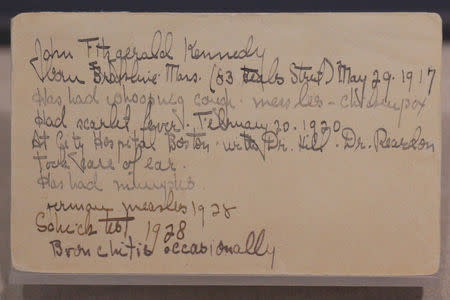 John Fitzgerald Kennedy
born Brookline Mass. (83 Beals Street) May 29. 1917
Has had whooping cough. measles - chickenpox
Had scarlet fever. February 20. 1920
At City Hospital Boston. with Dr. Hill. Dr. Reardon
Took care of ear.
Has had mumps
German measles 1928
Schick test 1928
Bronchitis occasionally